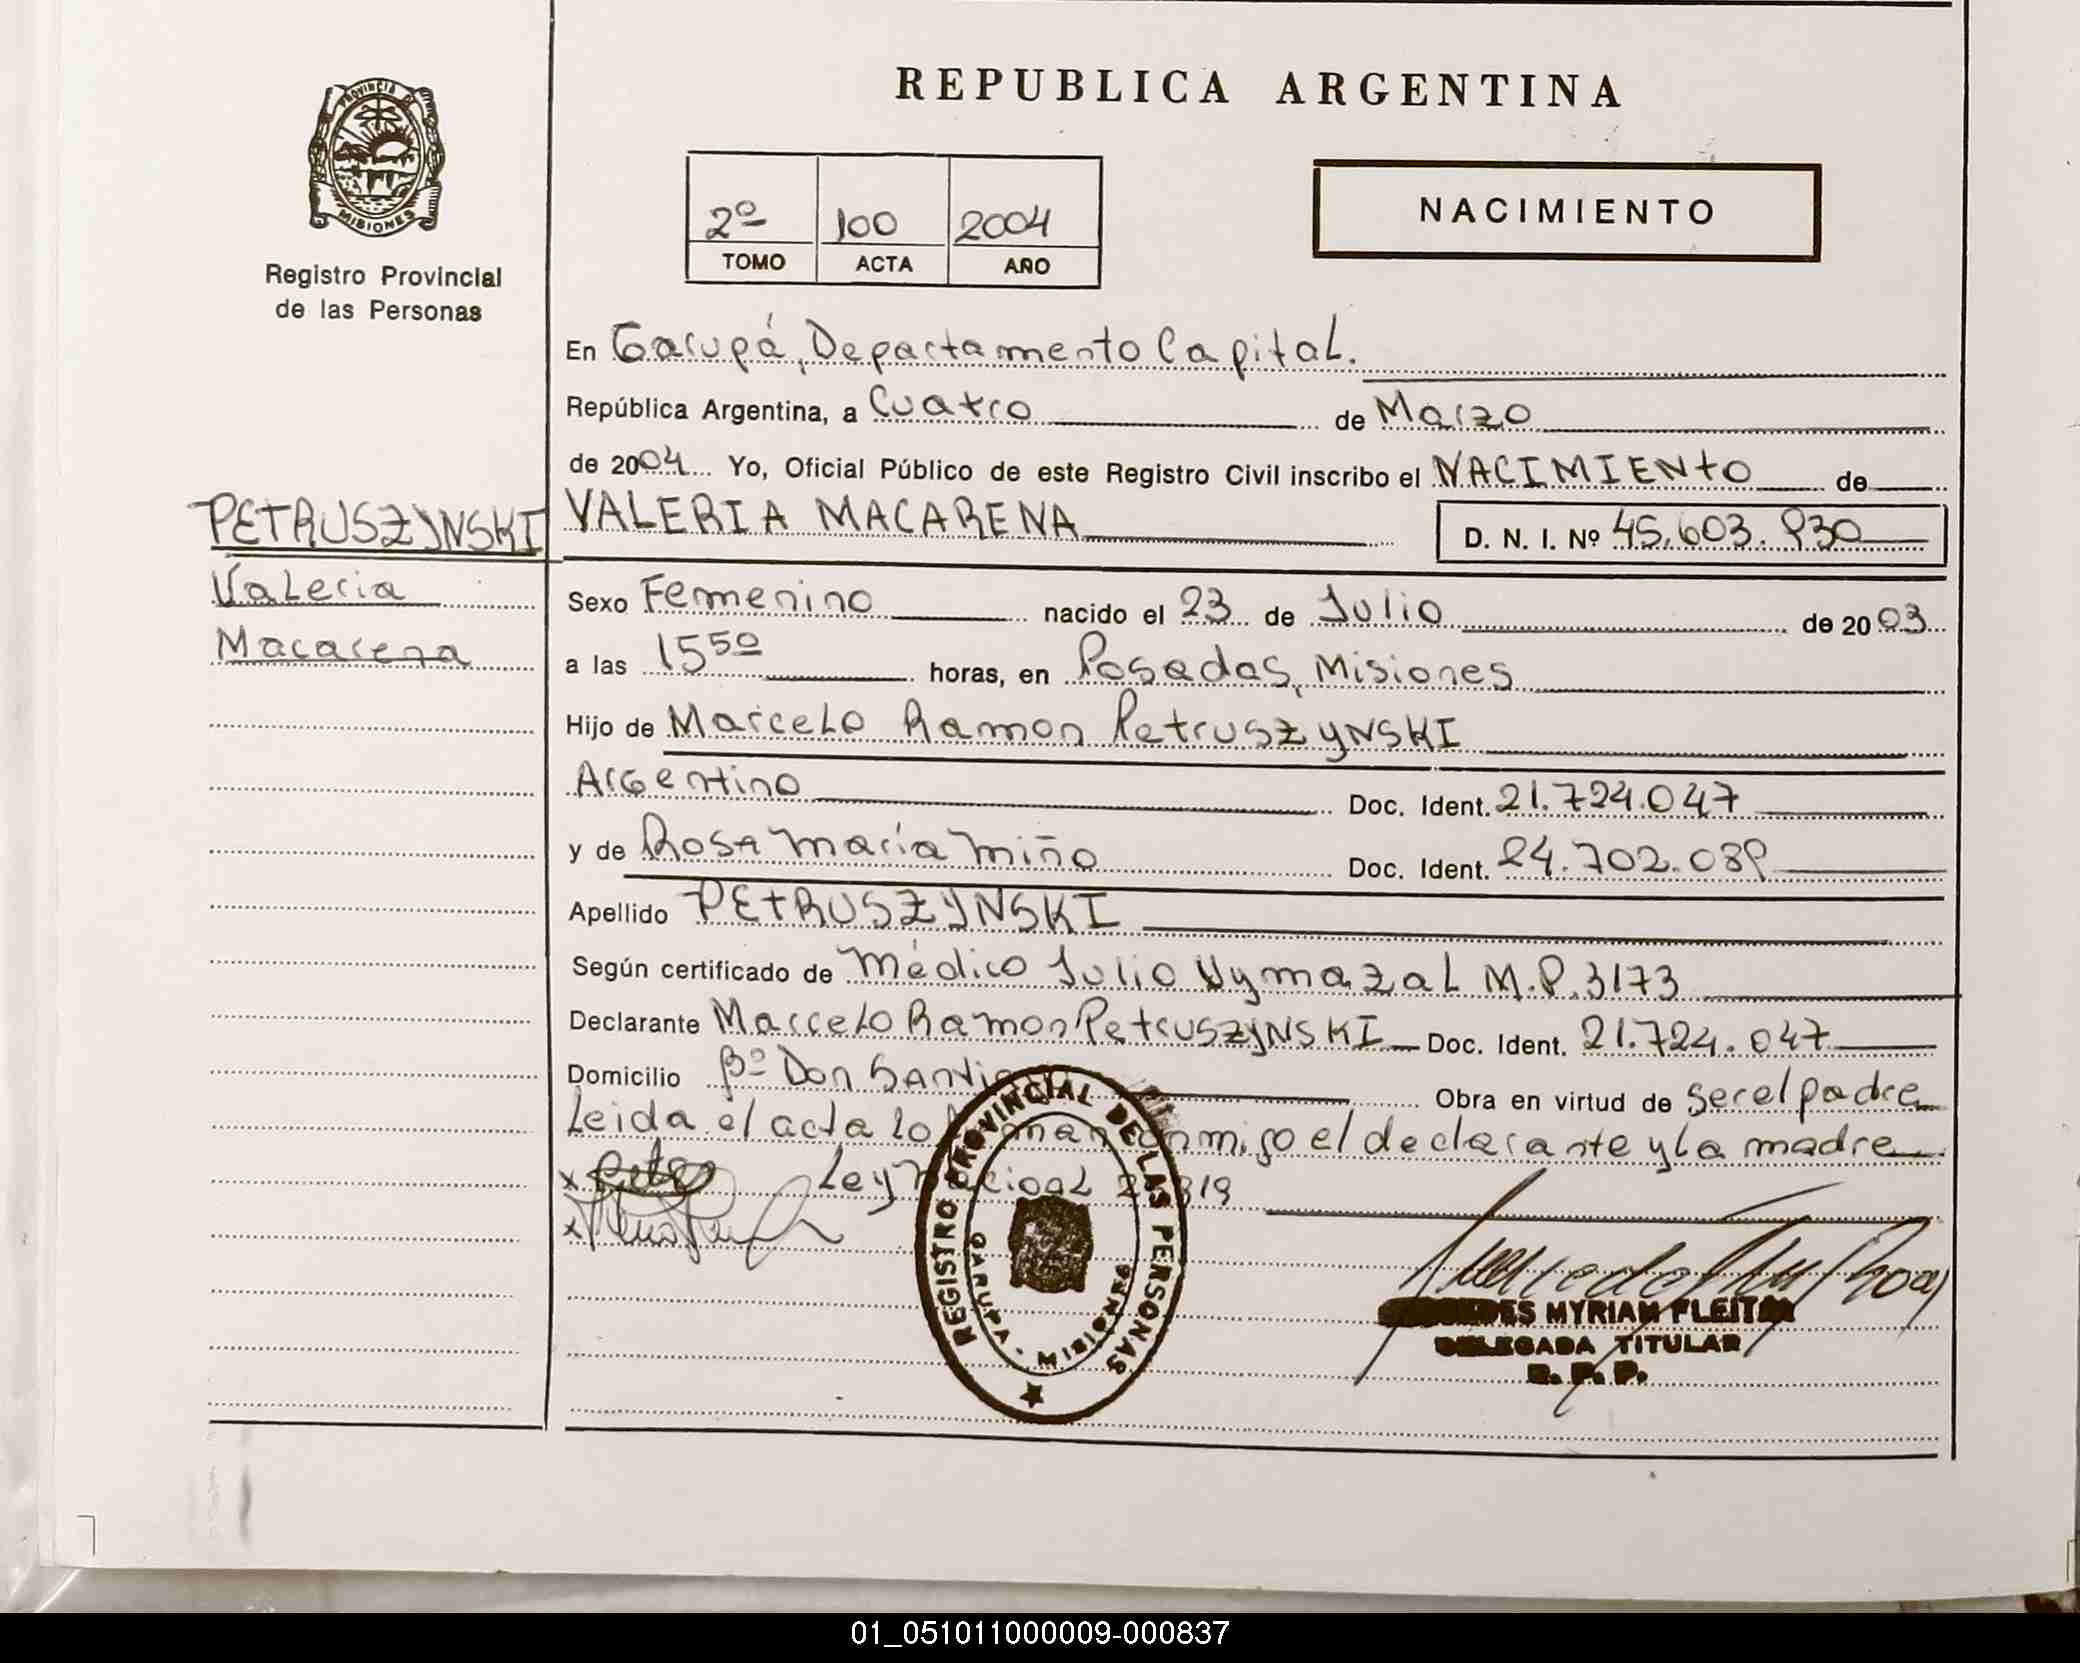 REPUBLICA ARGENTINA
PROVINCIA DE MISIONES
Registro Provincial
de las Personas
2º 100 2004
TOMO ACTA AÑO
NACIMIENTO
En Garupá, Departamento Capital.
República Argentina, a Cuatro de Marzo
de 2004 Yo, Oficial Público de este Registro Civil inscribo el NACIMIENTO de
PETRUSZYNSKI VALERIA MACARENA D. N. I. Nº 45.603.930
Valeria
Macarena
Sexo Femenino nacido el 23 de Julio de 2003
a las 15 50 horas, en Posadas, Misiones
Hijo de Marcelo Ramon PetruszYNSKI
Argentino Doc. Ident. 21.724.047
y de Rosa Maria Miño Doc. Ident. 24.702.089
Apellido PETRUSZYNSKI
Según certificado de Médico Julio Vymazal M.P. 3173
Declarante Marcelo Ramon PetruszYNSKI Doc. Ident. 21.724.047
Domicilio Bº Don Obra en virtud de ser el padre
Leida el acta lo conmigo el declarante y la madre
Ley
REGISTRO PROVINCIAL DE LAS PERSONAS
GARUPA - MISIONES
MYRIAM FLEITAS
DELEGADA TITULAR
R. P. P.
01_051011000009-000837